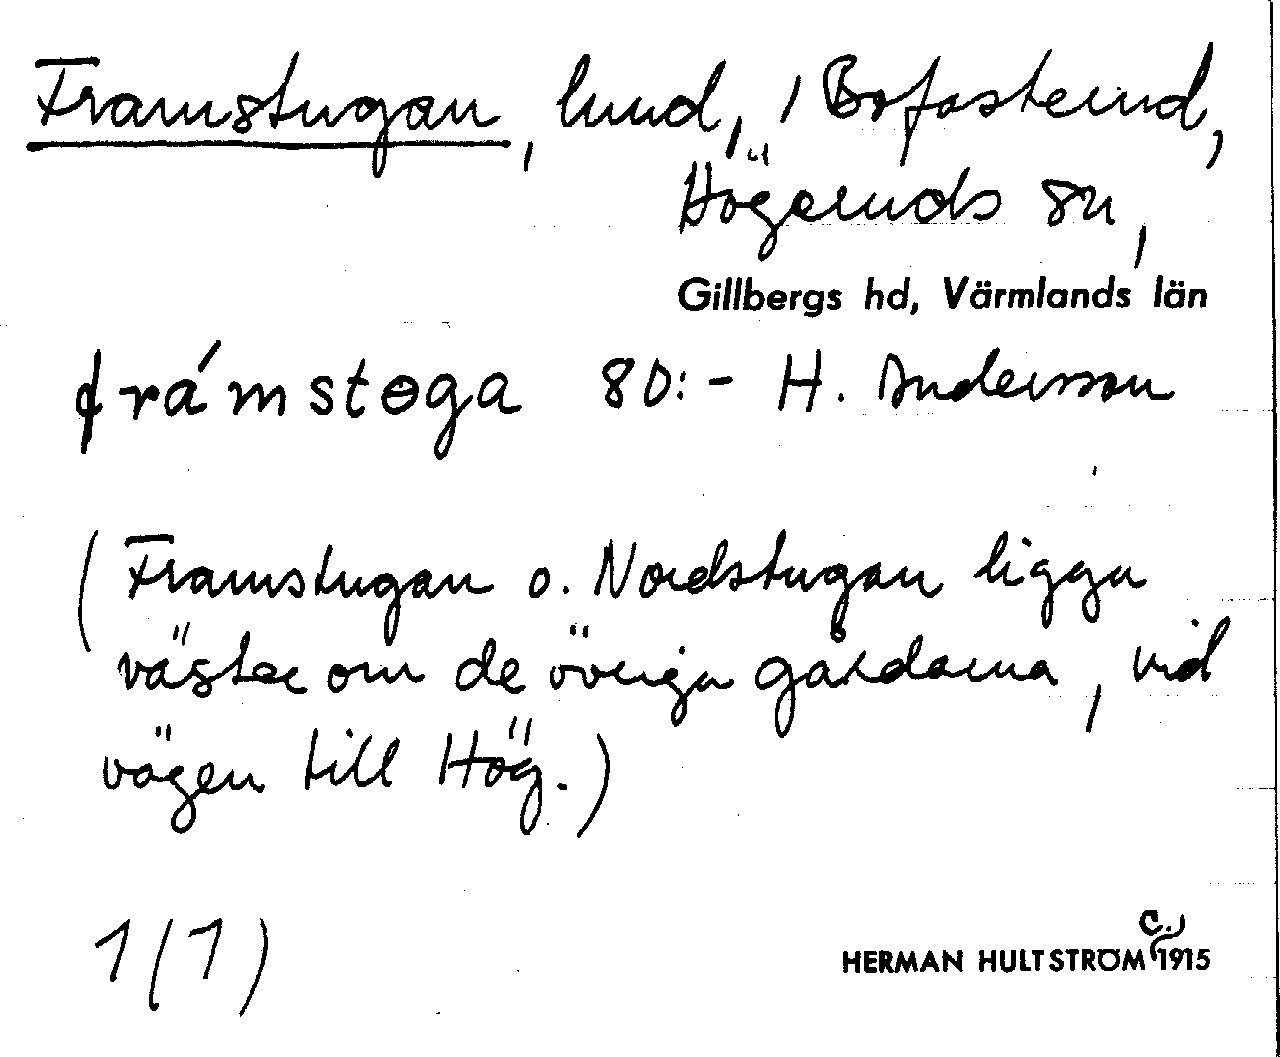 Framstugan, lund, i Bofasterud,
Högeruds sn,
Gillbergs hd, Värmlands län
frámstɵga 80:- H. Andersson
(Framstugan o. Nordstugan ligga
väster om de övriga gårdarna, vid
vägen till Hög.)
1(1)
HERMAN HULTSTRÖM c. 1915